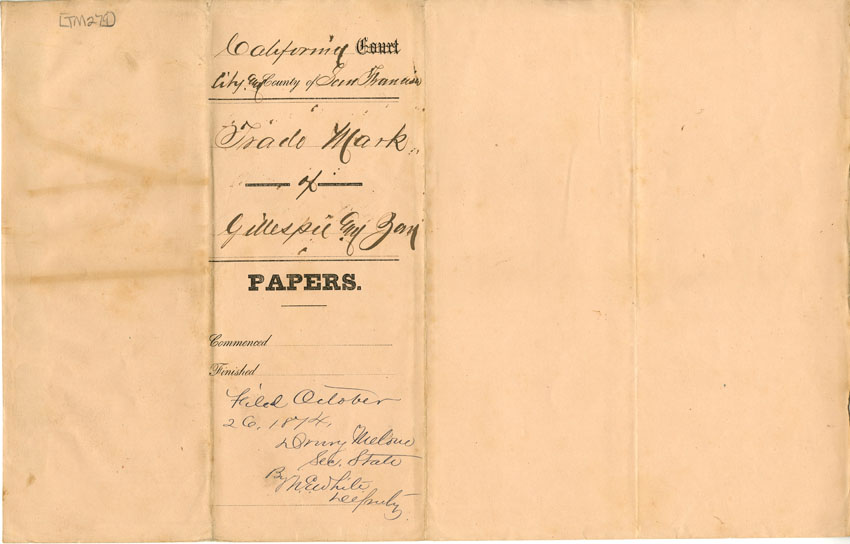 [TM274]
California Court
City & County of San Francisco
Trade Mark
of
Gillespie & Zan
PAPERS.
Commenced
Finished
Filed October
26, 1874,
Drury Melone
Sec. State
By
Deputy